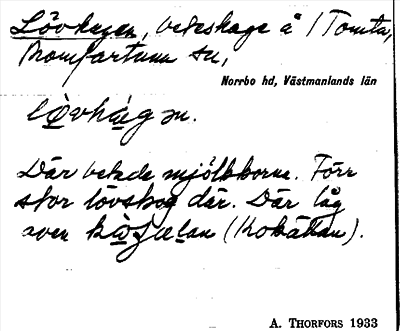 Lövhagen, beteshage å 1 Tomta,
Romfartuna sn,
Norrbo hd, Västmanlands län
lòvhàgən.
Där betade mjölkkorna. Förr
stor lövskog där. Där låg
även
(Kokällan).
A. THORFORS 1933